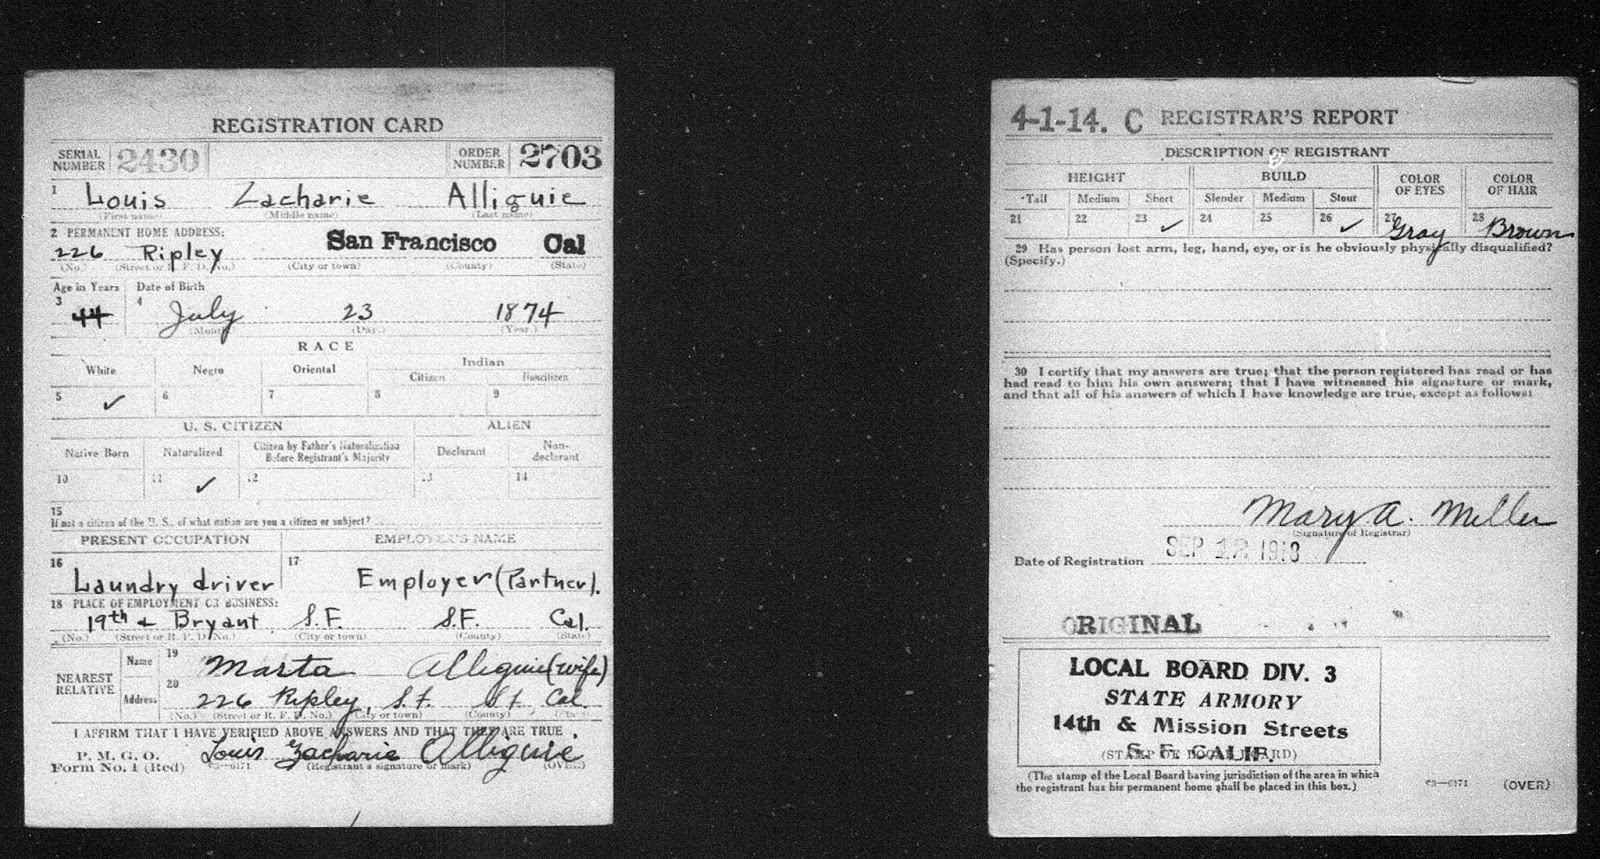 REGISTRATION CARD
SERIAL NUMBER 2430 ORDER NUMBER 2703
1 Louis Zacharie Alliguie
(First name) (Middle name) (Last name)
2 PERMANENT HOME ADDRESS:
226 Ripley San Francisco Cal
(No.) (Street or R. F. D. No.) (City or town) (County) (State)
Age in Years Date of Birth
3 44 4 July 23 1874
(Month.) (Day.) (Year.)
RACE
White Negro Oriental Indian
Citizen Noncitizen
5 ✓ 6 7 8 9
U. S. CITIZEN ALIEN
Native Born Naturalized Citizen by Father's Naturalization Before Registrant's Majority Declarant Non-declarant
10 11 ✓ 12 13 14
15
If not a citizen of the U. S., of what nation are you a citizen or subject?
PRESENT OCCUPATION EMPLOYER'S NAME
16 Laundry driver 17 Employer (Partner).
18 PLACE OF EMPLOYMENT OR BUSINESS:
19th & Bryant S.F. S.F. Cal.
(No.) (Street or R. F. D. No.) (City or town) (County) (State)
NEAREST RELATIVE Name 19 Marta Alliguie (wife)
Address 20 226 Ripley, S.F. S.F. Cal.
(No.) (Street or R. F. D. No.) (City or town) (County) (State)
I AFFIRM THAT I HAVE VERIFIED ABOVE ANSWERS AND THAT THEY ARE TRUE
P. M. G. O.
Form No. 1 (Red) Louis Zacharie Alliguie
03—6171 (Registrant's signature or mark) (OVER)
4-1-14. C REGISTRAR'S REPORT
DESCRIPTION OF REGISTRANT
HEIGHT BUILD COLOR OF EYES COLOR OF HAIR
Tall Medium Short Slender Medium Stout
21 22 23 ✓ 24 25 26 ✓ 27 Gray 28 Brown
29 Has person lost arm, leg, hand, eye, or is he obviously physically disqualified?
(Specify.)
30 I certify that my answers are true; that the person registered has read or has
had read to him his own answers; that I have witnessed his signature or mark,
and that all of his answers of which I have knowledge are true, except as follows:
Mary A. Miller
(Signature of Registrar)
Date of Registration SEP 12 1918
ORIGINAL
LOCAL BOARD DIV. 3
STATE ARMORY
14th & Mission Streets
S. F. CALIF.
(STAMP OF LOCAL BOARD)
(The stamp of the Local Board having jurisdiction of the area in which
the registrant has his permanent home shall be placed in this box.)
03—6171 (OVER)